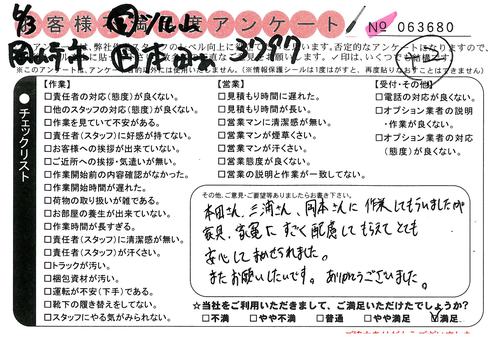 お客様満足度アンケート
№ 063680
6/3
岡崎市
チェックリスト
【作業】
□責任者の対応(態度)が良くない。
□他のスタッフの対応(態度)が良くない。
□作業を見ていて不安がある。
□責任者(スタッフ)に好感が持てない。
□お客様への挨拶が出来ていない。
□ご近所への挨拶・気遣いが無い。
□作業開始前の内容確認がなかった。
□作業開始時間が遅れた。
□荷物の取り扱いが雑である。
□お部屋の養生が出来ていない。
□作業時間が長すぎる。
□責任者(スタッフ)に清潔感が無い。
□責任者(スタッフ)が汗くさい。
□トラックが汚い。
□梱包資材が汚い。
□運転が不安(下手)である。
□靴下の履き替えをしてない。
□スタッフにやる気がみられない。
【営業】
□見積もり時間に遅れた。
□見積もり時間が長い。
□営業マンに清潔感が無い。
□営業マンが煙草くさい。
□営業マンが汗くさい。
□営業態度が良くない。
□営業の説明と作業が一致してない。
【受付・その他】
□電話の対応が良くない。
□オプション業者の説明
・作業が良くない。
□オプション業者の対応
(態度)が良くない。
その他、ご意見・ご要望等ありましたらお書き下さい。
本田さん、三浦さん、岡本さんに作業してもらいましたが
家具、家電にすごく配慮してもらえてとても
安心してまかせられました。
またお願いしたいです。ありがとうございました。
☆当社をご利用いただきまして、ご満足いただけたでしょうか?
□不満 □やや不満 □普通 □やや満足 ☑満足